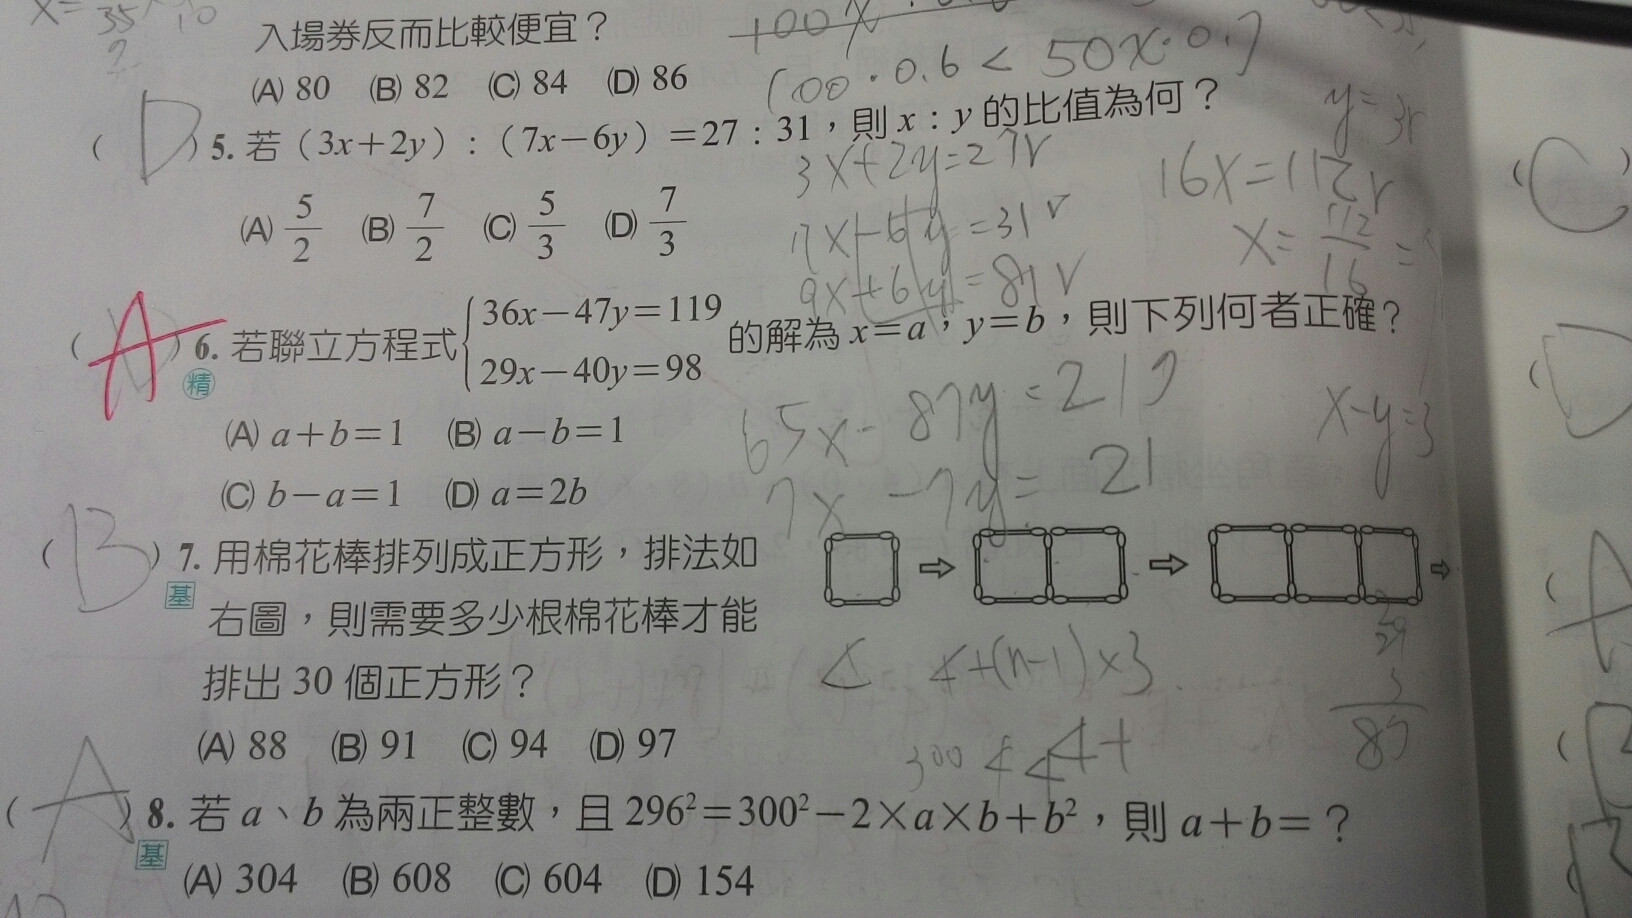 入場券反而比較便宜？
(A) 80 (B) 82 (C) 84 (D) 86
100·0.6<50x·0.7
(D) 5. 若（3x+2y）:（7x−6y）=27：31，則 x：y 的比值為何？
3x+2y=27r
y=3r
16x=112r
(A) 5/2 (B) 7/2 (C) 5/3 (D) 7/3
7x-6y=31r
x=112/16=
9x+6y=81r
(A) 6. 若聯立方程式{36x−47y=119
29x−40y=98 的解為 x=a，y=b，則下列何者正確？
精
(A) a+b=1 (B) a−b=1
65x-87y=219
x-y=3
(C) b−a=1 (D) a=2b
7x-7y=21
(B) 7. 用棉花棒排列成正方形，排法如
基
右圖，則需要多少根棉花棒才能
排出 30 個正方形？
4 4+(n-1)×3
29
3
87
(A) 88 (B) 91 (C) 94 (D) 97
300 4 4 4+
(A) 8. 若 a、b 為兩正整數，且 296²=300²−2×a×b+b²，則 a+b=？
基
(A) 304 (B) 608 (C) 604 (D) 154
(C)
(D
(A